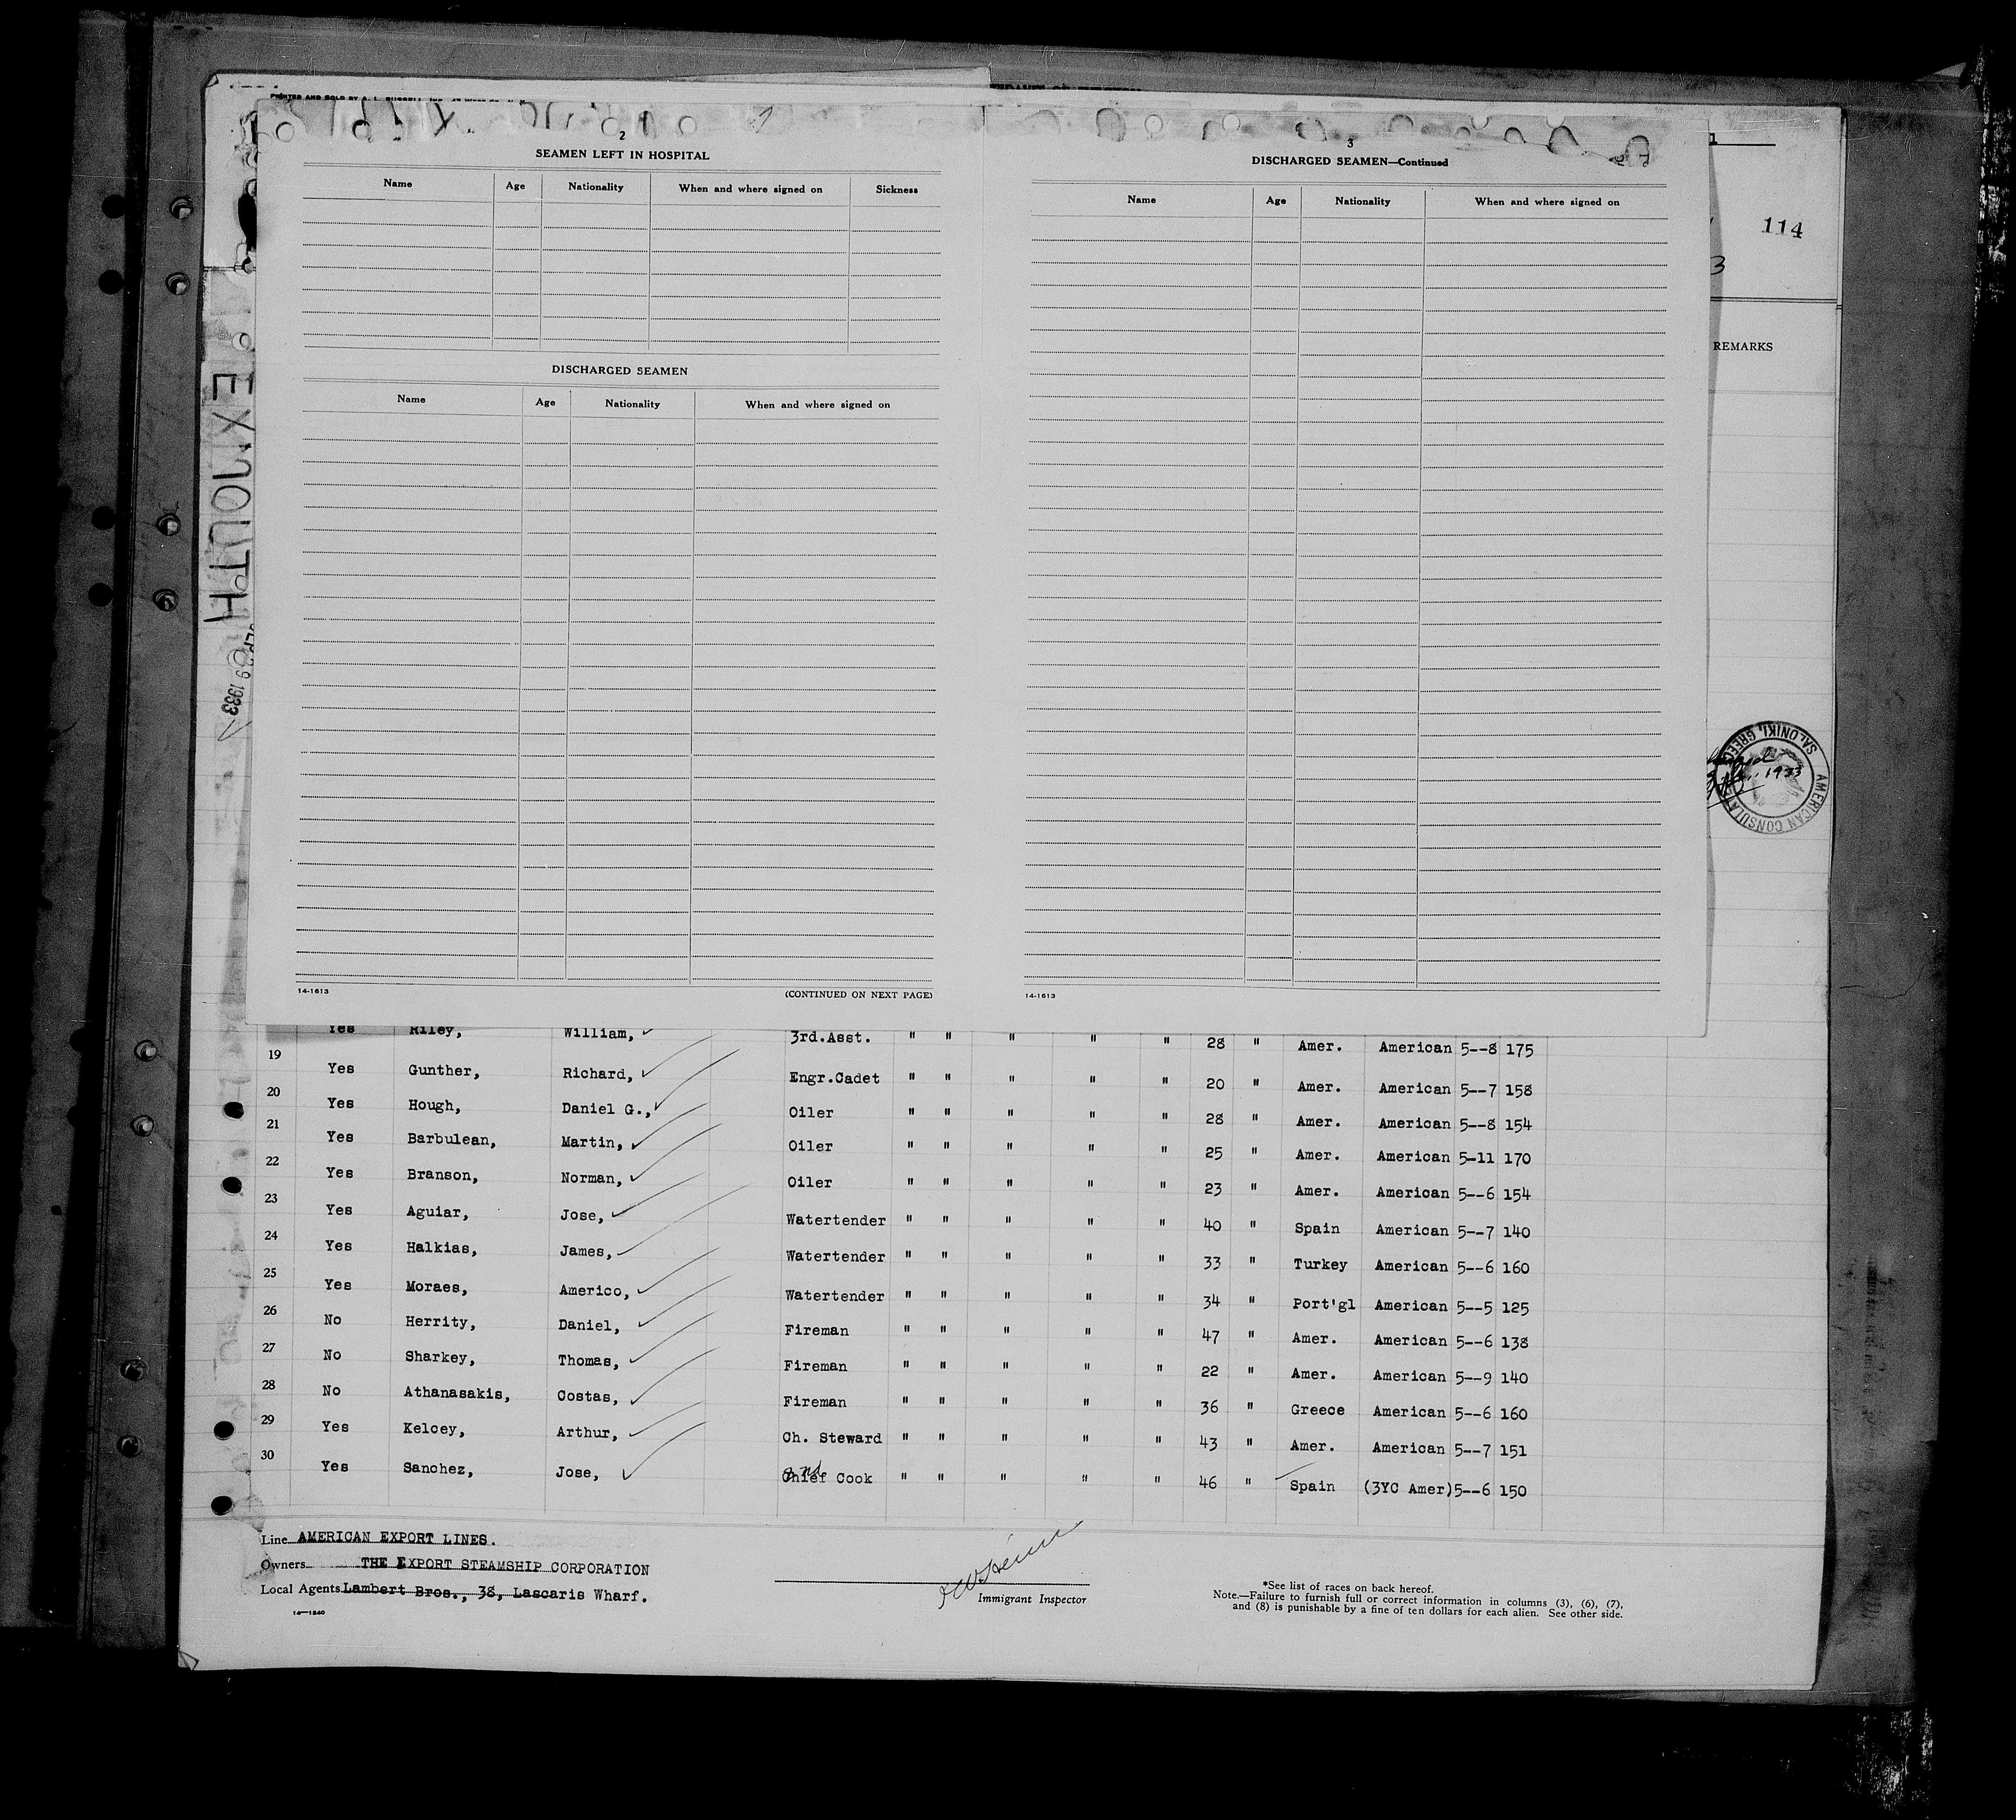 2
SEAMEN LEFT IN HOSPITAL
Name Age Nationality When and where signed on Sickness
DISCHARGED SEAMEN
Name Age Nationality When and where signed on
14-1613 (CONTINUED ON NEXT PAGE)
3
DISCHARGED SEAMEN—Continued
Name Age Nationality When and where signed on
14-1613
114
3
REMARKS
EXMOUTH
9 1933
AMERICAN CONSULATE
SALONIKI, GREECE
1933
Yes Riley, William, 3rd.Asst. " " " " " 28 " Amer. American 5--8 175
19 Yes Gunther, Richard, Engr.Cadet " " " " " 20 " Amer. American 5--7 158
20 Yes Hough, Daniel G., Oiler " " " " " 28 " Amer. American 5--8 154
21 Yes Barbulean, Martin, Oiler " " " " " 25 " Amer. American 5-11 170
22 Yes Branson, Norman, Oiler " " " " " 23 " Amer. American 5--6 154
23 Yes Aguiar, Jose, Watertender " " " " " 40 " Spain American 5--7 140
24 Yes Halkias, James, Watertender " " " " " 33 " Turkey American 5--6 160
25 Yes Moraes, Americo, Watertender " " " " " 34 " Port'gl American 5--5 125
26 No Herrity, Daniel, Fireman " " " " " 47 " Amer. American 5--6 138
27 No Sharkey, Thomas, Fireman " " " " " 22 " Amer. American 5--9 140
28 No Athanasakis, Costas, Fireman " " " " " 36 " Greece American 5--6 160
29 Yes Kelcey, Arthur, Ch. Steward " " " " " 43 " Amer. American 5--7 151
30 Yes Sanchez, Jose, 2nd Chief Cook " " " " " 46 " Spain (3YC Amer) 5--6 150
Line AMERICAN EXPORT LINES.
Owners THE EXPORT STEAMSHIP CORPORATION
Local Agents Lambert Bros., 38, Lascaris Wharf.
14—1240
Immigrant Inspector
*See list of races on back hereof.
Note.—Failure to furnish full or correct information in columns (3), (6), (7),
and (8) is punishable by a fine of ten dollars for each alien. See other side.